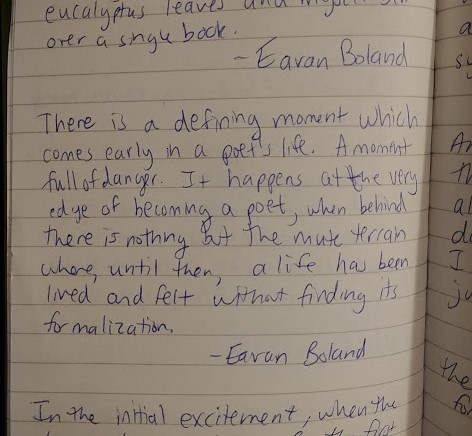 eucalyptus leaves and
over a single book.
- Eavan Boland
There is a defining moment which
comes early in a poet's life. A moment
full of danger. It happens at the very
edge of becoming a poet, when behind
there is nothing but the mute terrain
where, until then, a life has been
lived and felt without finding its
formalization.
- Eavan Boland
In the initial excitement, when the
the first
the